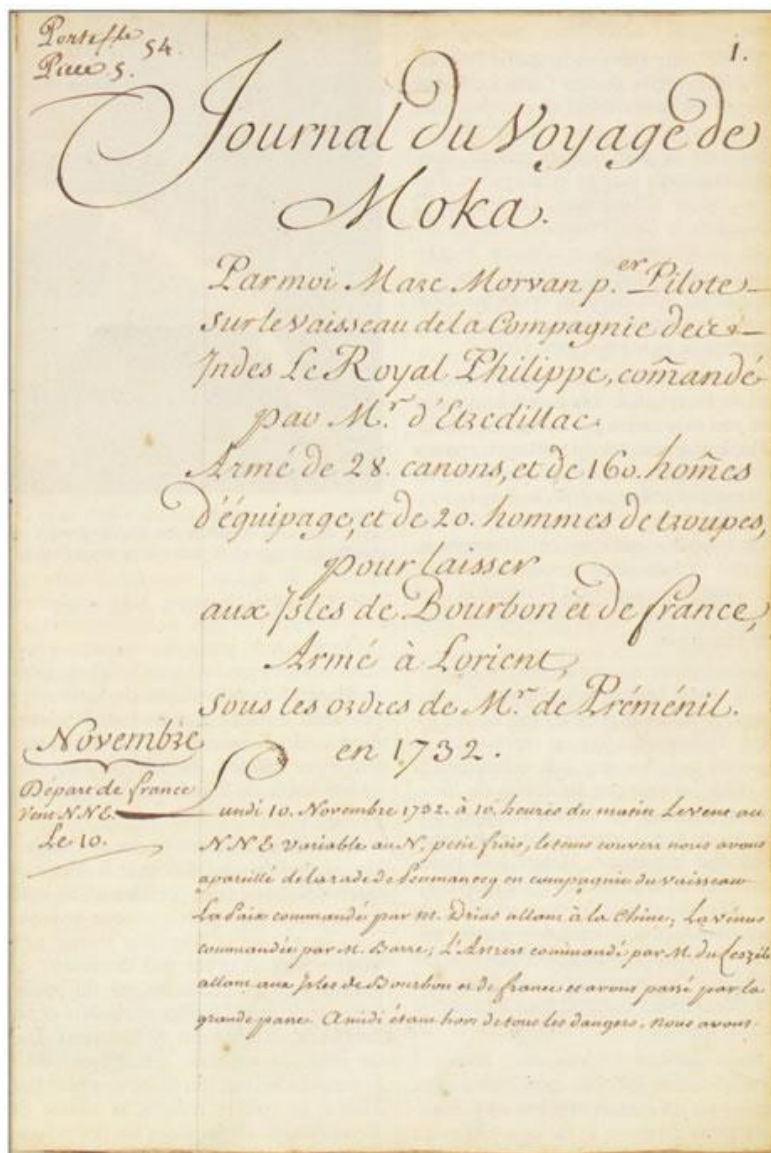 Portefle 54.
Piece 5.
1.
Journal du Voyage de
Moka.
Par moi Marc Morvan p.er Pilote
Sur le vaisseau de la Compagnie des
Indes Le Royal Philippe, com̃andé
par M.r d'Etredillac
Armé de 28. canons, et de 160. hom̃es
d'équipage, et de 20. hommes de troupes,
pour laisser
aux Isles de Bourbon et de france,
Armé à Lorient,
sous les ordres de M.r de Préménil.
en 1732.
Novembre
Départ de france
Vent NNE.
Le 10.
Lundi 10. Novembre 1732. à 10. heures du matin Le vent au
NNE variable au N, petit frais, le tems couvert nous avons
apareillé de la rade de en compagnie du vaisseau
La Paix commandé par M. Drias allant à la Chine; La vénus
commandée par M. Barre; L' commandé par M. du
allant aux Isles de Bourbon et de france et avons passé par la
grande passe. A midi étant hors de tous les dangers, nous avons